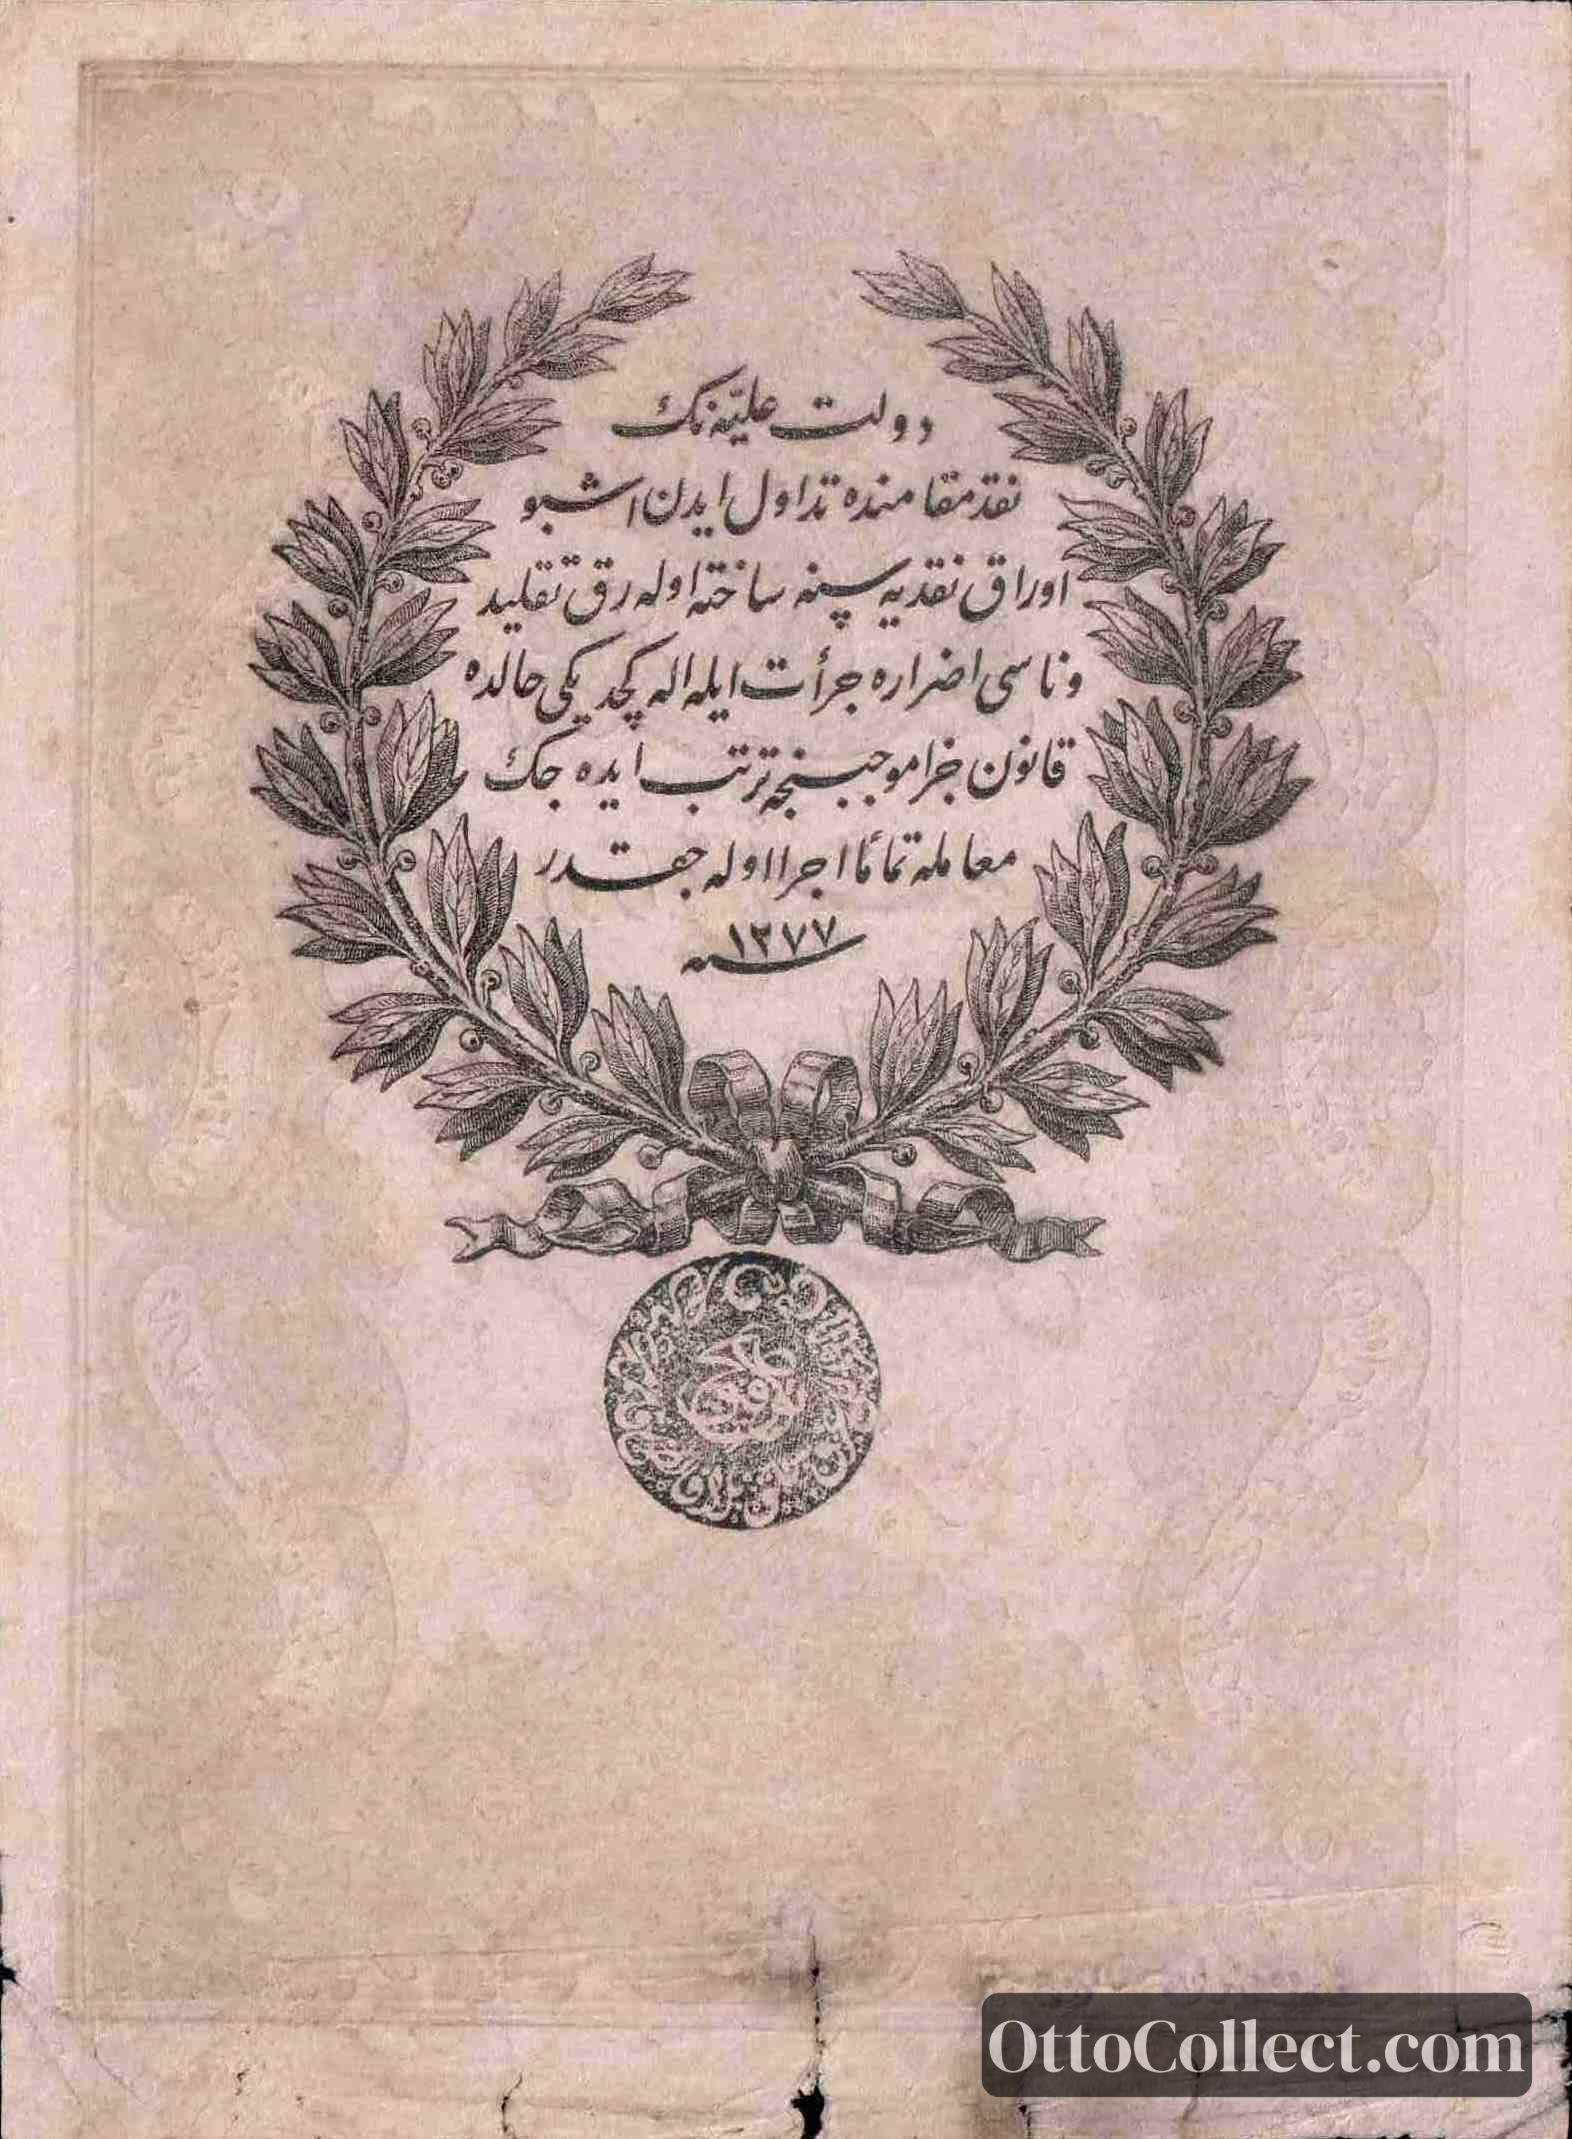 دولت علیّه نك
نقد مقامنده تداول ایدن اشبو
اوراق نقدیه سنه ساخته اوله رق تقلید
وناسی اضراره جرأت ایله اله کچدیکی حالده
قانون جزا موجبنجه ترتب ایده جك
معامله تمامًا اجرا اوله جقدر
سنه ١٢٧٧
OttoCollect.com